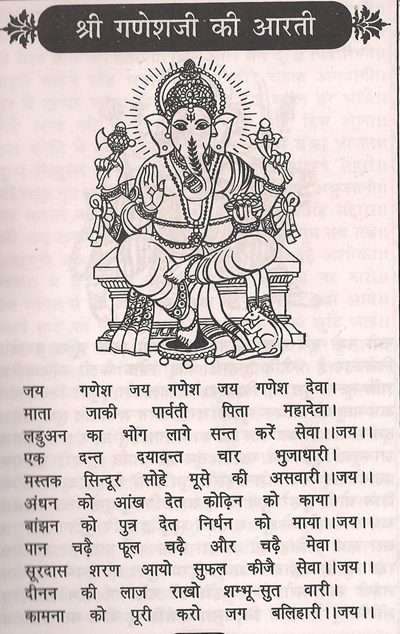 श्री गणेशजी की आरती
जय गणेश जय गणेश जय गणेश देवा।
माता जाकी पार्वती पिता महादेवा।
लडुअन का भोग लागे सन्त करें सेवा।।जय।।
एक दन्त दयावन्त चार भुजाधारी।
मस्तक सिन्दूर सोहे मूसे की असवारी।।जय।।
अंधन को आंख देत कोढ़िन को काया।
बांझन को पुत्र देत निर्धन को माया।।जय।।
पान चढ़ै फूल चढ़ै और चढ़ै मेवा।
सूरदास शरण आयो सुफल कीजै सेवा।।जय।।
दीनन की लाज राखो शम्भू-सुत वारी।
कामना को पूरी करो जग बलिहारी।।जय।।